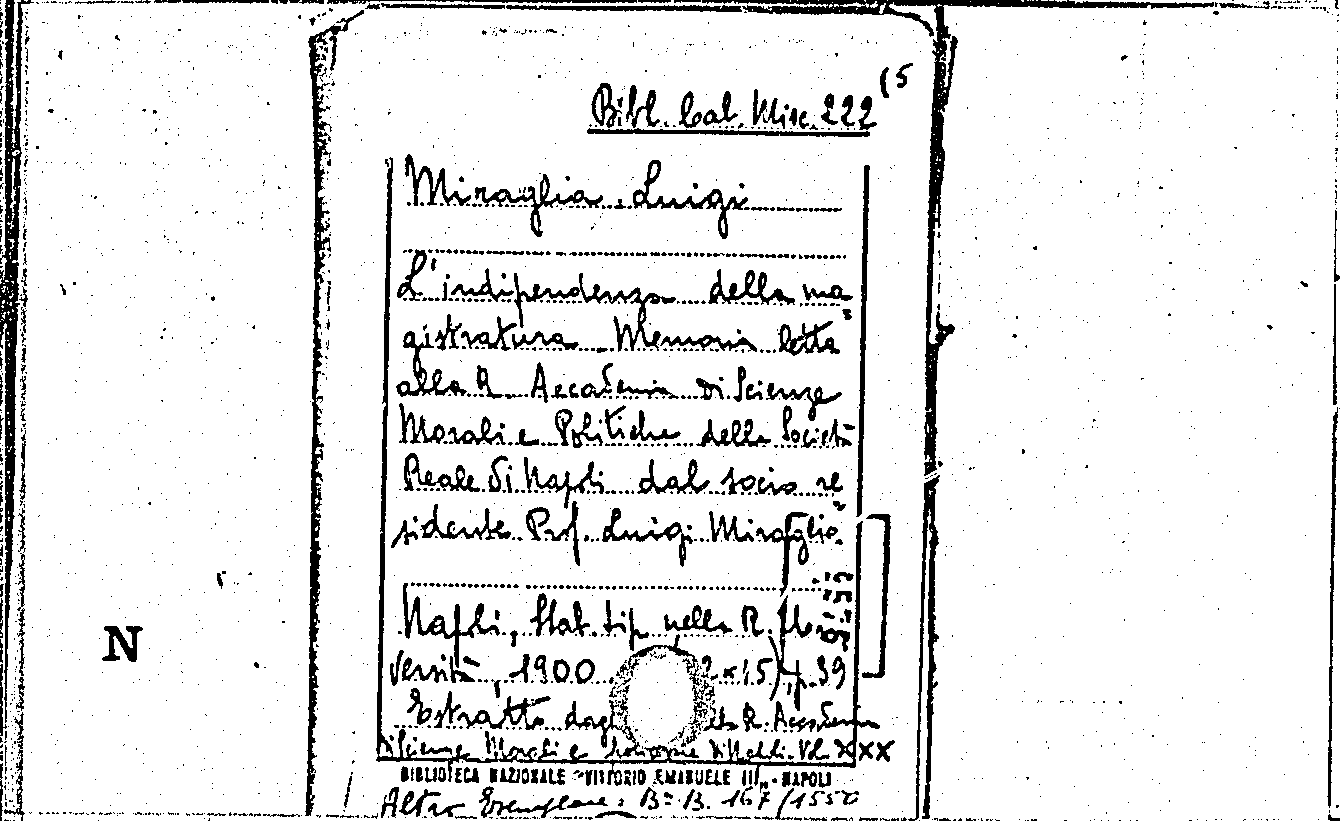 Bibl. Cal. Misc. 222 (5
Miraglia Luigi
L'indipendenza della ma=
gistratura Memoria letta
alla R. Accademia di Scienze
Morali e Politiche della Società
Reale di Napoli dal socio re=
sidente Prof. Luigi Miraglia.
Napoli, Stab. tip. nella R. Uni
versità, 1900 x15), p. 39
Estratto R. Accademia
di Scienze Morali e di Napoli. Vol. XXX
BIBLIOTECA NAZIONALE "VITTORIO EMANUELE III" - NAPOLI
Altro Esemplare: Bª B. 167/1550
N